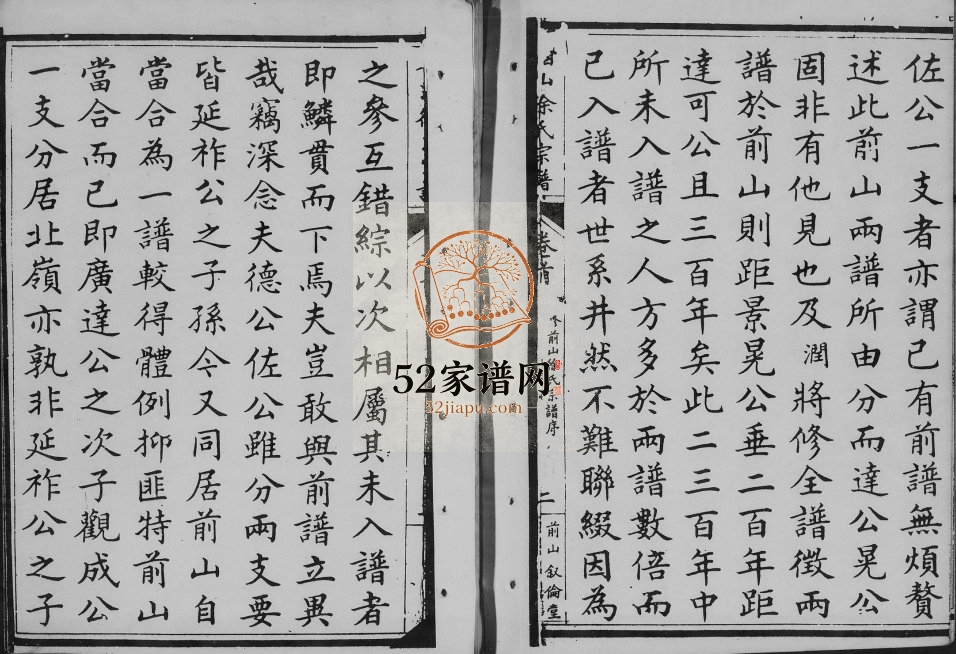 佐公一支者亦謂已有前譜無煩贅
述此前山兩譜所由分而達公晃公
固非有他見也及潤將修全譜徵兩
譜於前山則距景晃公垂二百年距
達可公且三百年矣此二三百年中
所未入譜之人方多於兩譜數倍而
已入譜者世系井然不難聯綴因為
山徐氏宗譜
卷首
前山徐氏宗譜序
二
前山敘倫堂
之參互錯綜以次相屬其未入譜者
即鱗貫而下焉夫豈敢與前譜立異
哉竊深念夫德公佐公雖分兩支要
皆延祚公之子孫今又同居前山自
當合為一譜較得體例抑匪特前山
當合而已即廣達公之次子觀成公
一支分居北嶺亦孰非延祚公之子
52家谱网
52jiapu.com